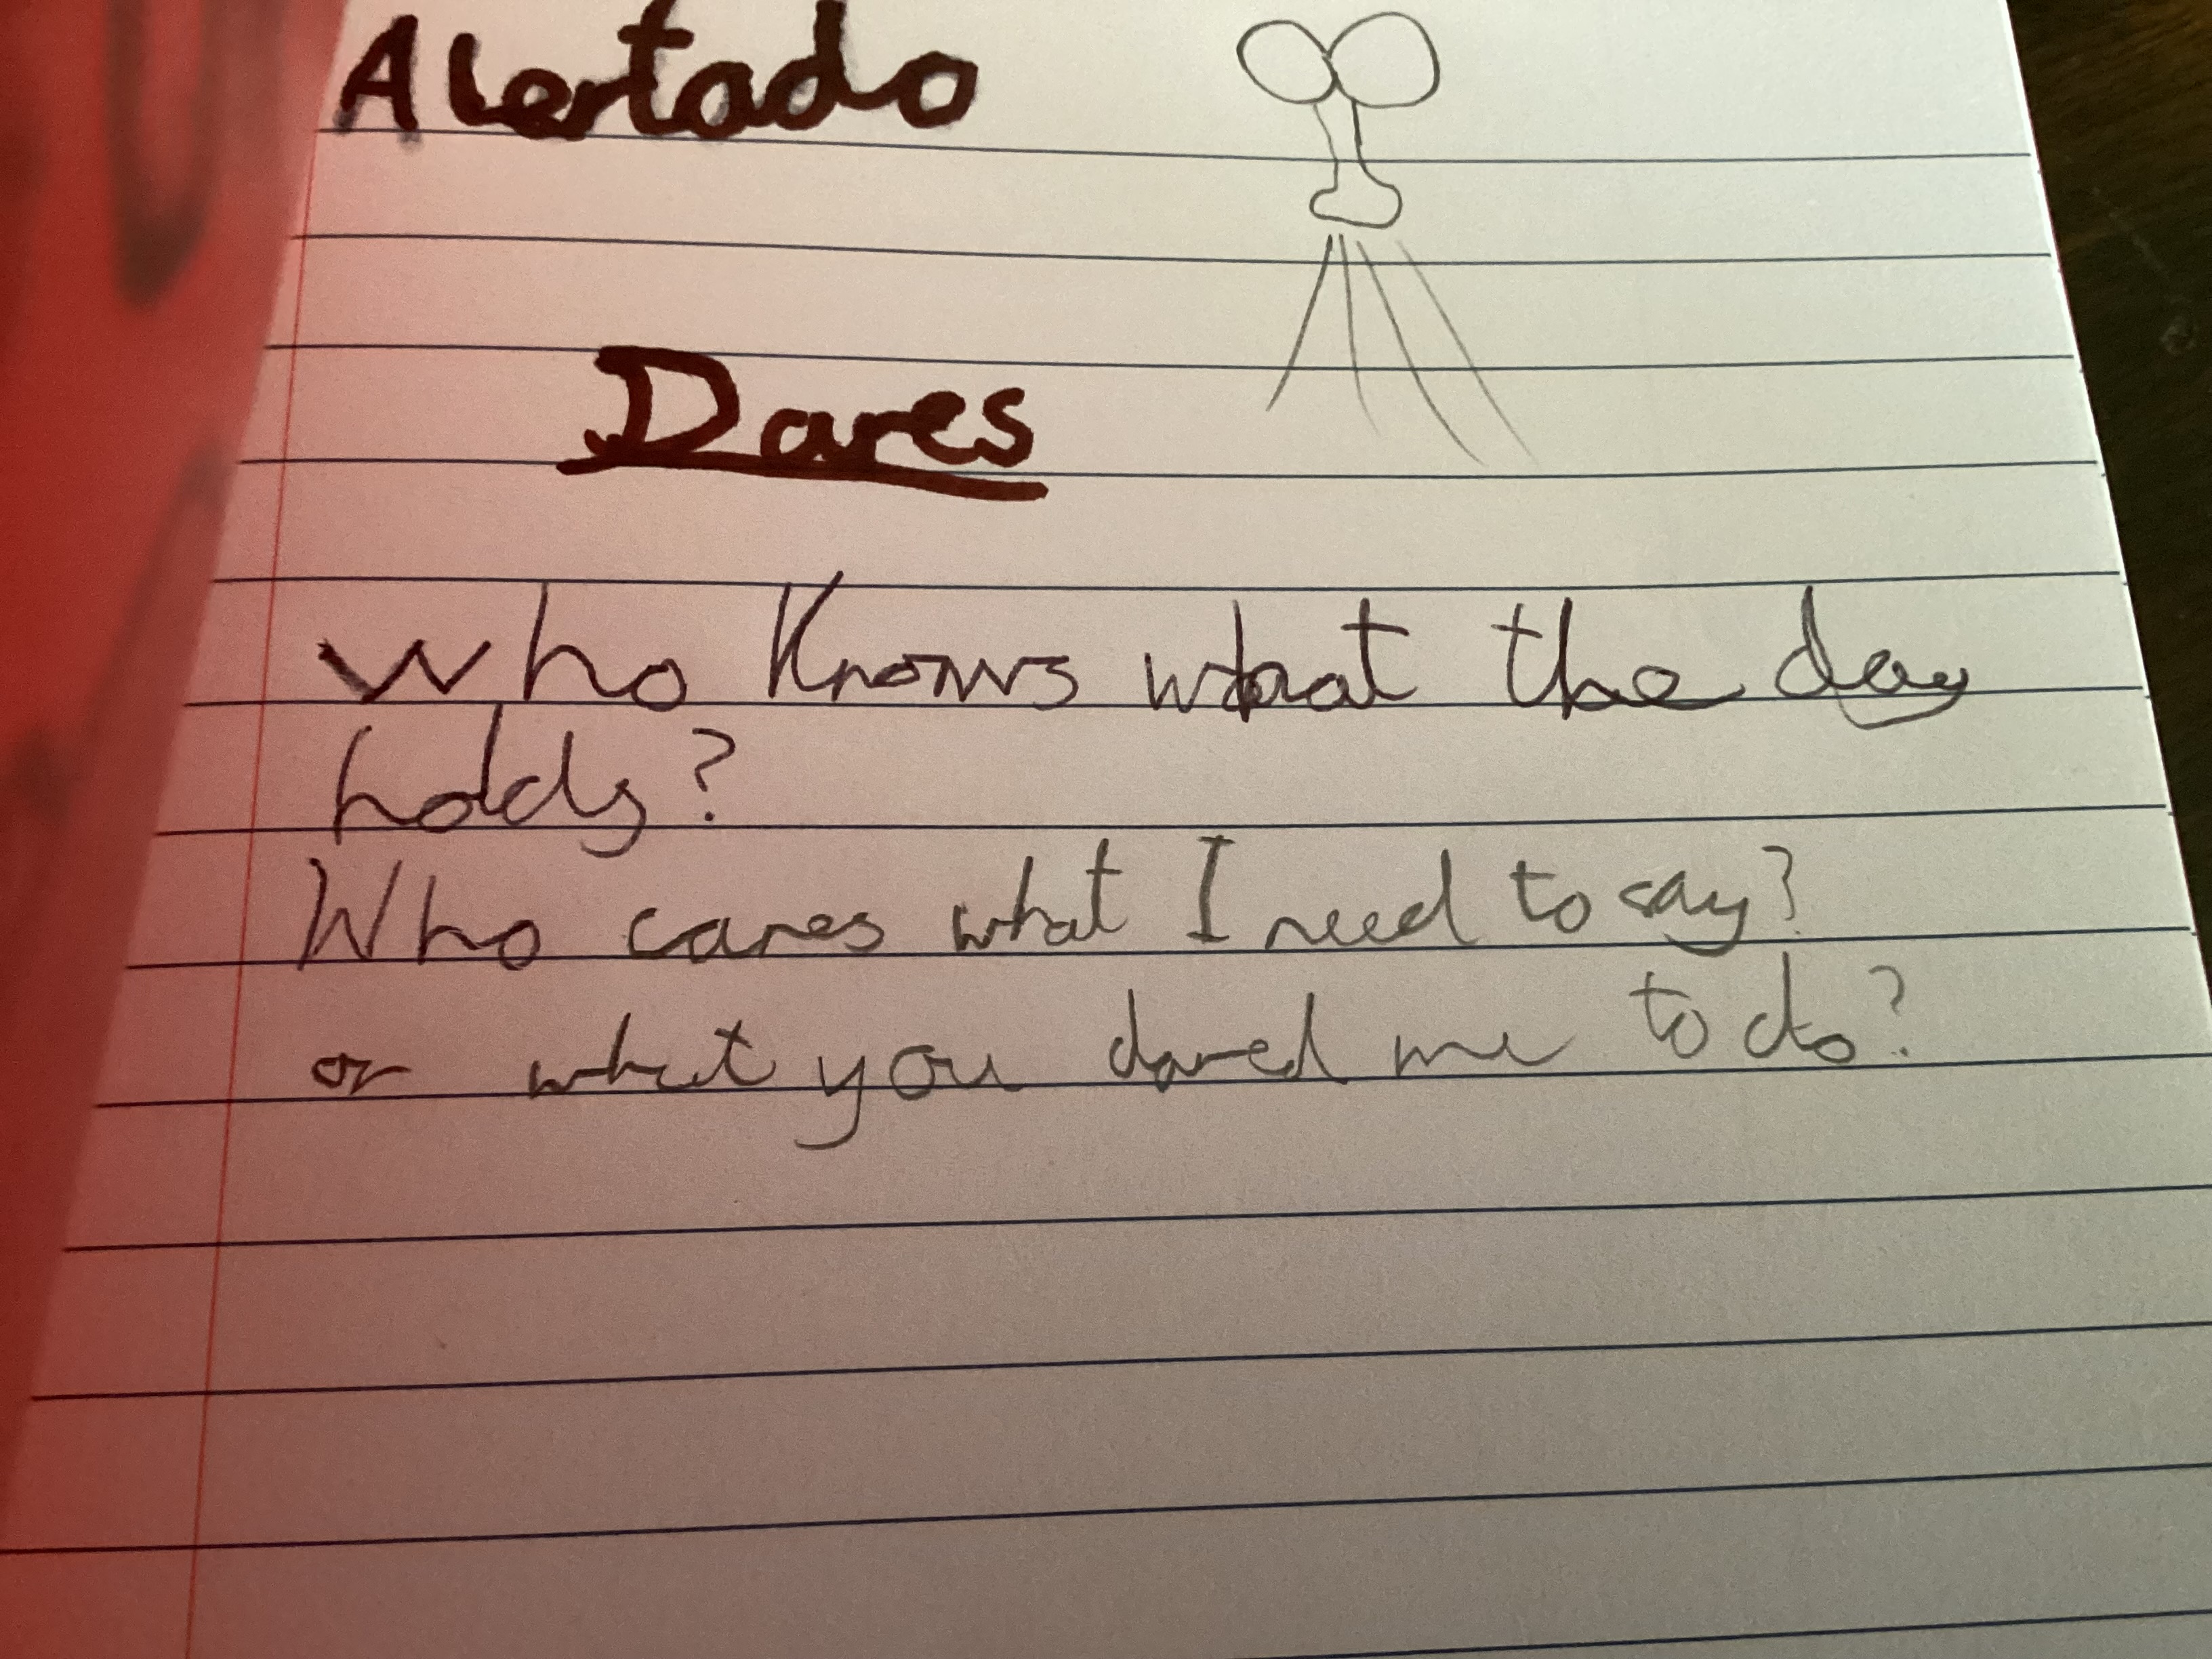 Alertado
Dares
Who Knows what the day
holds?
Who cares what I need to say?
or what you dared me to do?